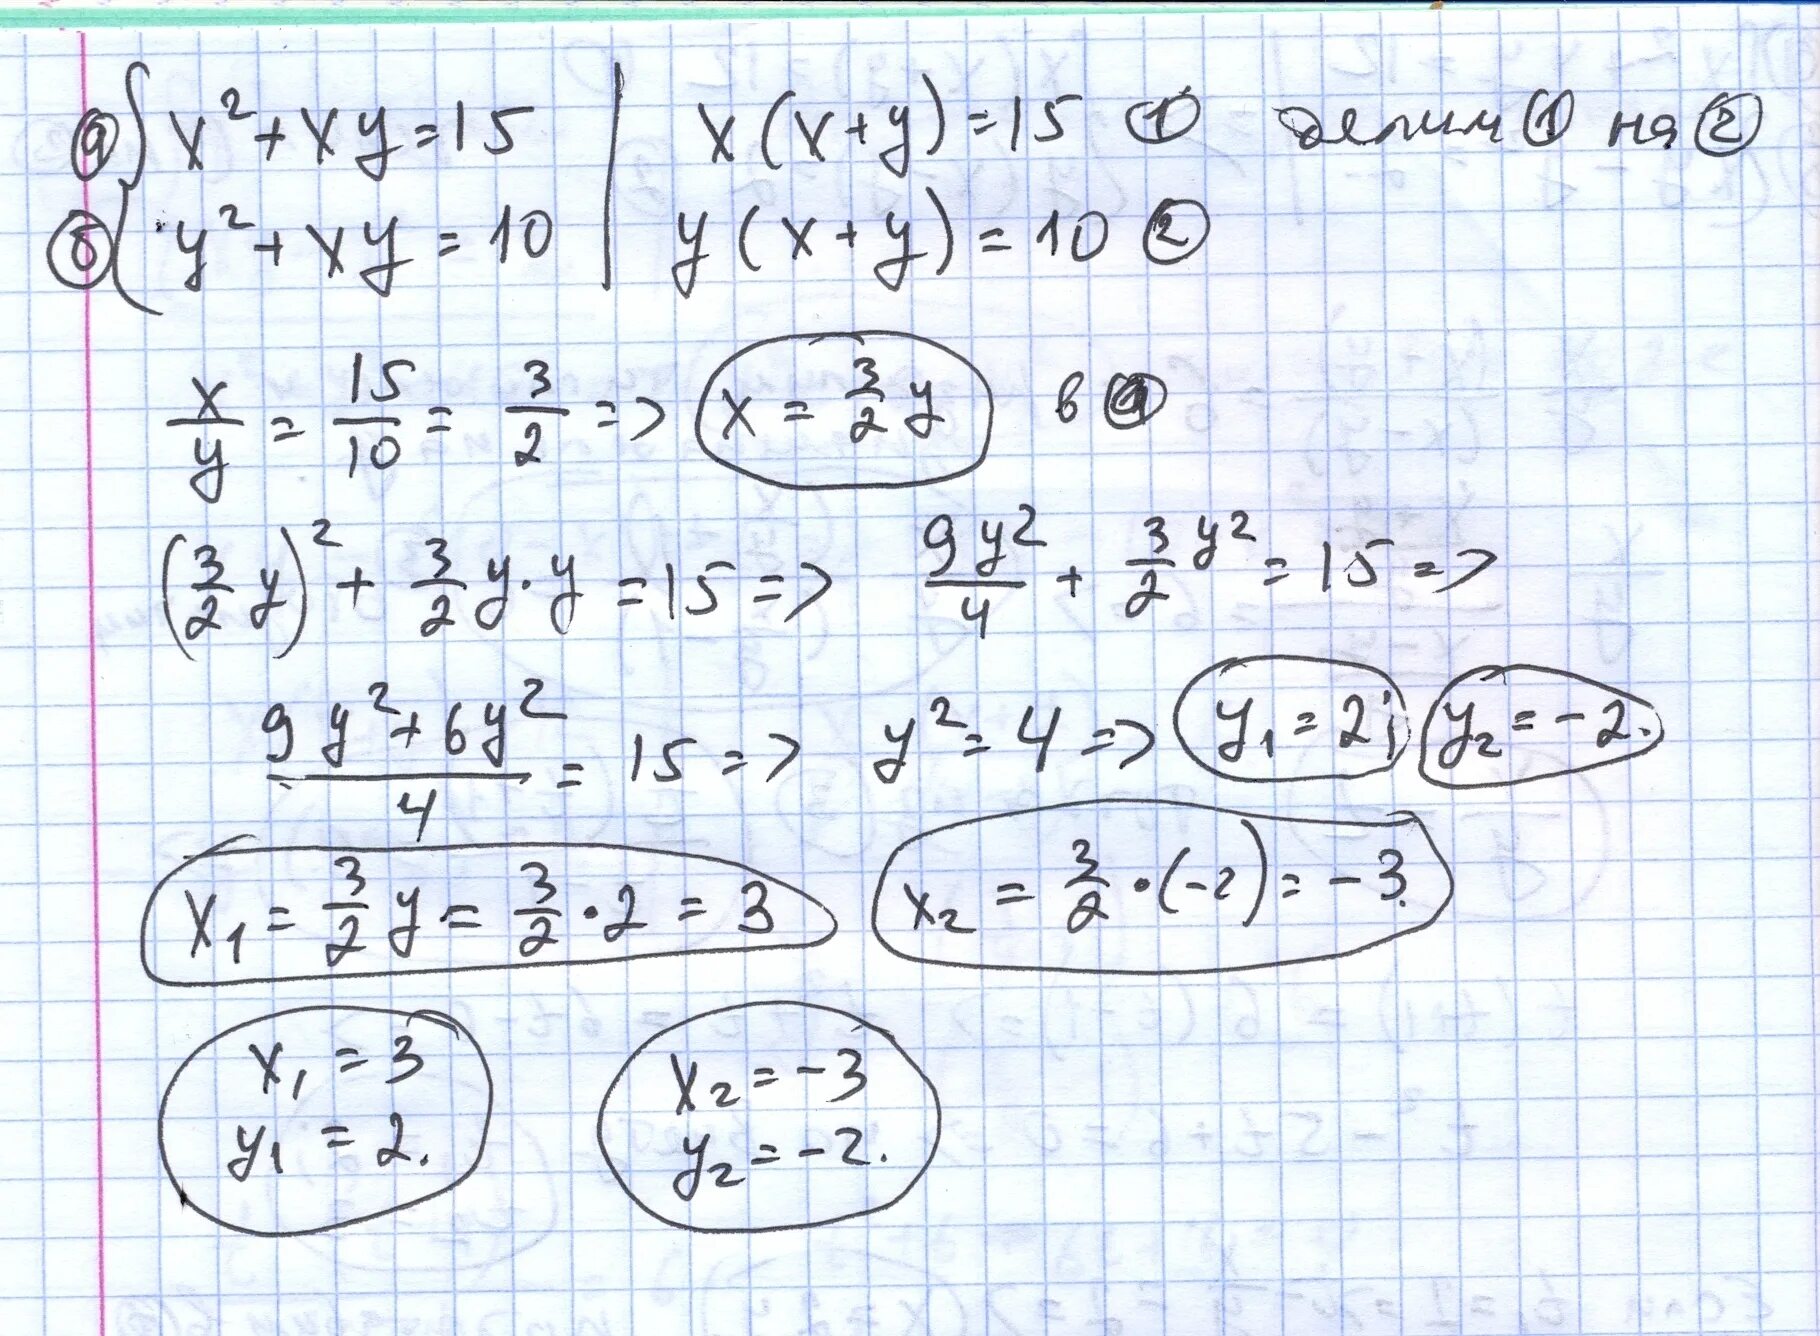 а) { x² + xy = 15 | x(x+y) = 15 ① делим ① на ②
б) { y² + xy = 10 | y(x+y) = 10 ②
x/y = 15/10 = 3/2 => x = 3/2 y в а
(3/2 y)² + 3/2 y·y = 15 => 9y²/4 + 3/2 y² = 15 =>
(9y² + 6y²)/4 = 15 => y² = 4 => y₁ = 2; y₂ = -2.
x₁ = 3/2 y = 3/2 · 2 = 3 x₂ = 3/2 · (-2) = -3.
x₁ = 3 x₂ = -3
y₁ = 2. y₂ = -2.